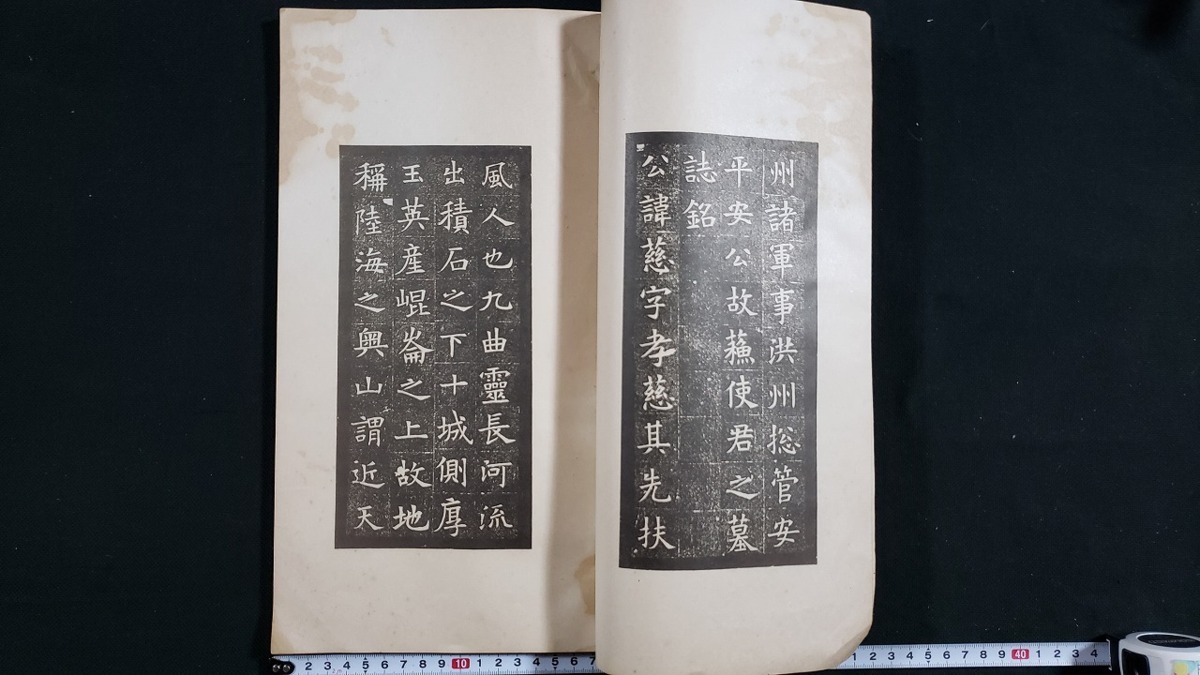 州諸軍事洪州捴管安
平安公故蘓使君之墓
誌銘
公諱慈字孝慈其先扶
風人也九曲靈長河流
出積石之下十城側厚
玉英産崐崙之上故地
稱陸海之奥山謂近天
2 3 4 5 6 7 8 9 10 1 2 3 4 5 6 7
1 2 3 4 5 6 7 8 9 40 1 2 3 4